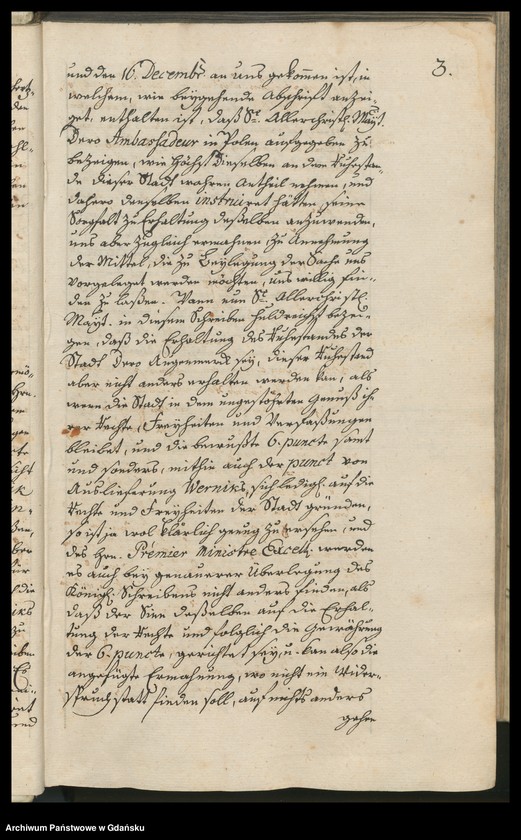 3.
und den 16. Decembr. an uns gekommen ist, in
welchem, wie beygehende Abschrifft anzei-
get, enthalten ist, daß Sr. Allerchristl. Mayt.
Dero Ambassadeur in Polen aufgegeben zu
bezeigen, wie höchst Dieselben an dem Ruhestan-
de dieser Stadt wahren Antheil nehmen, und
dahero denselben instruiret hätten, seine
Sorgfalt zu Erhaltung desselben anzuwenden,
uns aber zugleich ermahnen zu Annehmung
der Mittel, die zu Beylegung der Sache uns
vorgeleget werden möchten, uns willig fin-
den zu laßen. Wann nun Sr. Allerchristl.
Mayt. in diesem Schreiben huldreichst bezei-
gen, daß die Erhaltung des Ruhestandes der
Stadt Dero Augenmerck sey, dieser Ruhestand
aber nicht anders erhalten werden kan, als
wenn die Stadt in dem ungestöhrten Genuß ih-
rer Rechte, Freyheiten und Verfaßungen
bleibet, und die bewußte 6. puncte samt
und sonders, mithin auch der punct von
Auslieferung Werniks, sich ledigl. auf die
Rechte und Freyheiten der Stadt gründen,
so ist ja wol klärlich genug zu ersehen, und
des Hrn. Premier Ministre Excell. werden
es auch bey genauerer Überlegung des
Königl. Schreibens nicht anders finden, als
daß der Sinn desselben auf die Erhal-
tung der Rechte und folglich die Gewährung
der 6. puncte, gerichtet sey, u. kan also die
angefügte Ermahnung, wo nicht ein Wider-
spruch statt finden soll, auf nichts anders
gehen
Archiwum Państwowe w Gdańsku